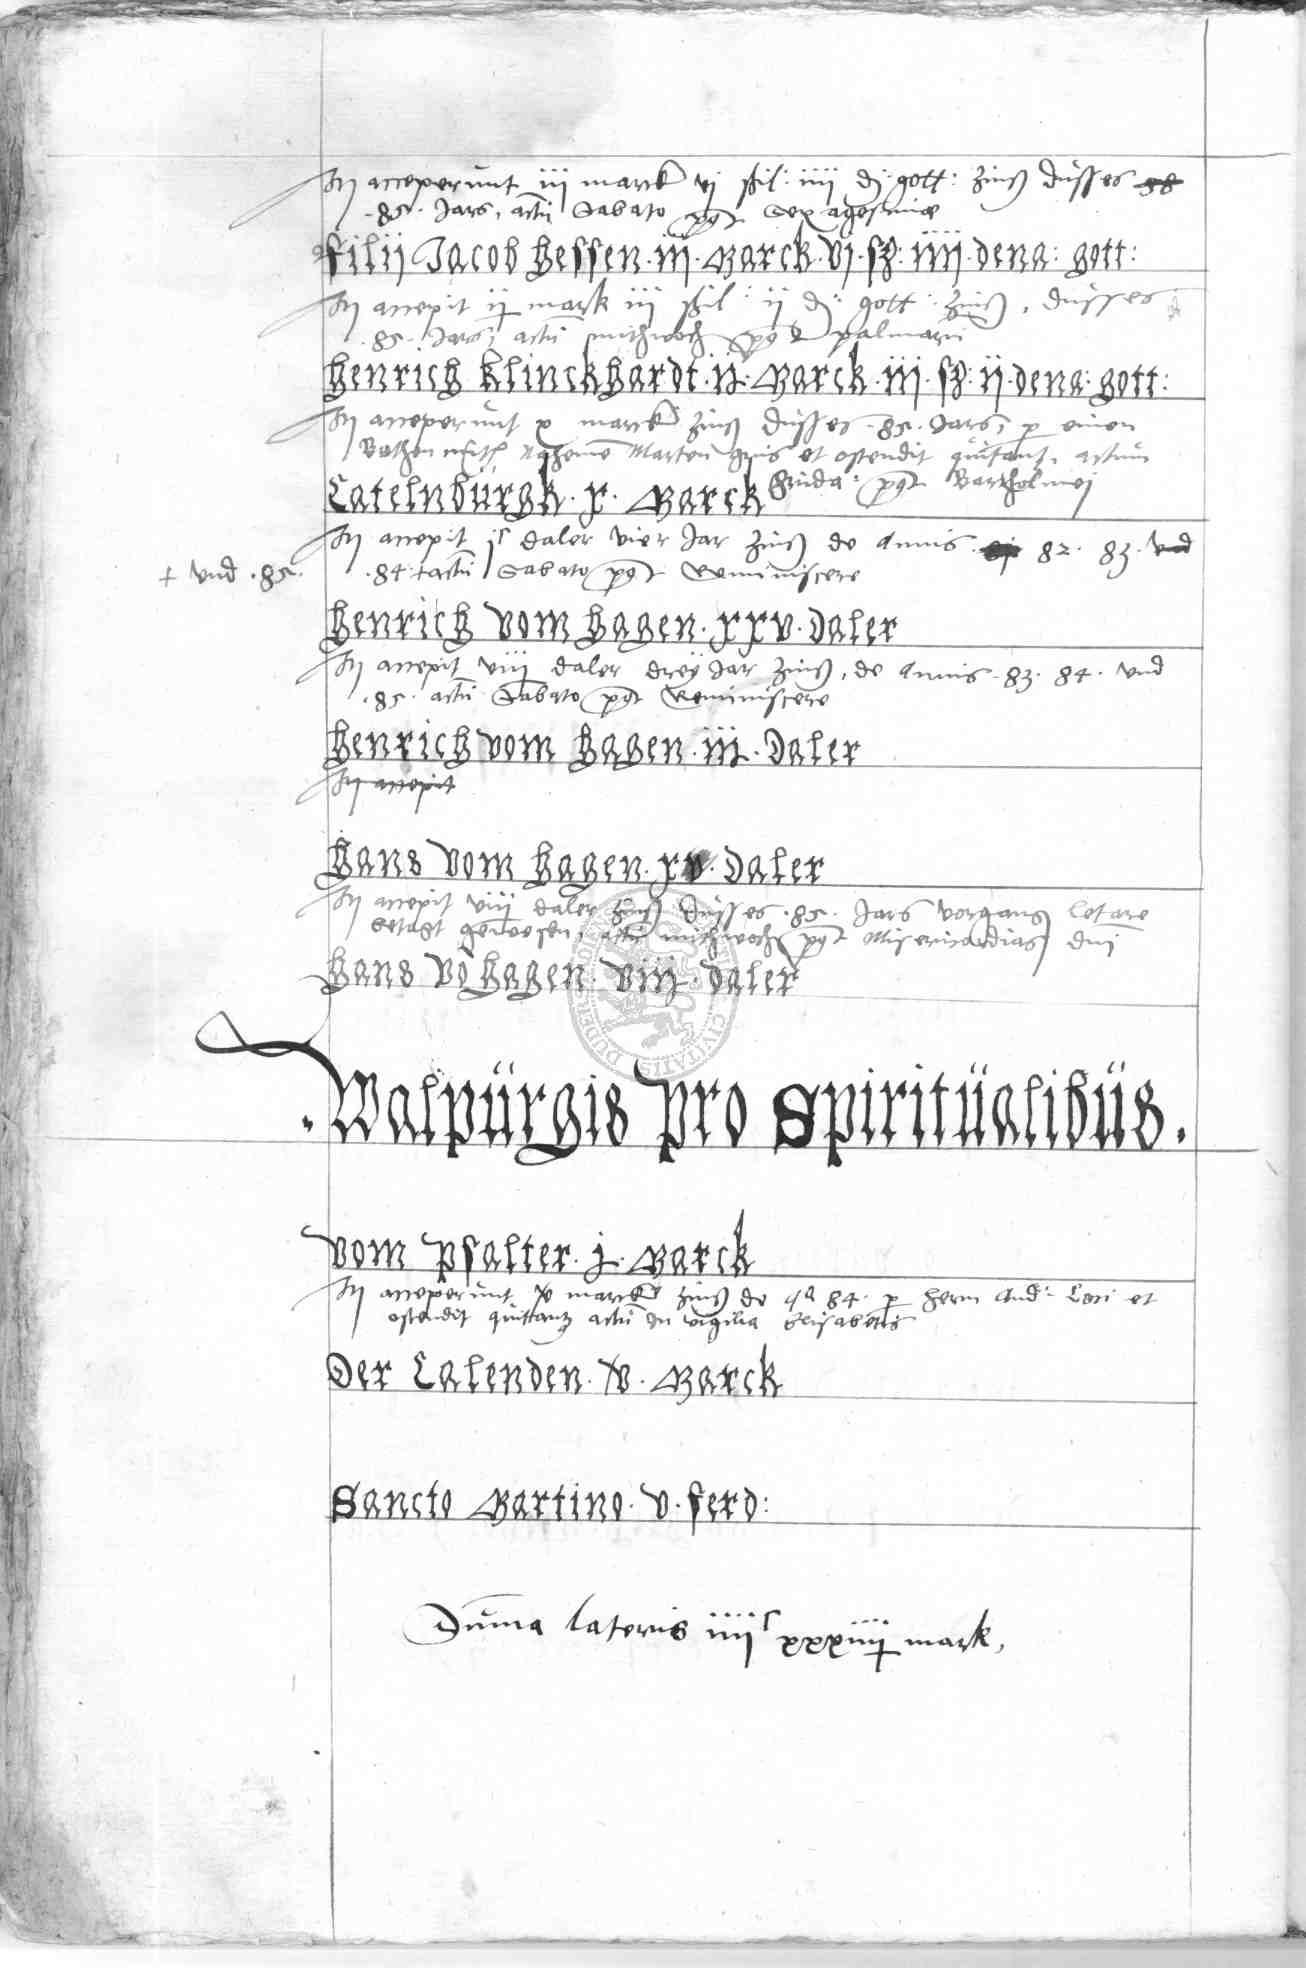 Hij acceperunt iij marck vj schil: iiij d: gott: Zinß dusses 88
.85. Jars, actu Sabato post Sexagesimae
filij Jacob Hessen .iij. Marck .vj. sz: iiij. dena: gott:
Hij accepit ij mark iij schil: ij d: gott: Zinß, dusses
.85. Jars, actu mithwoch post palmaru
Henrich Klinckhardt .ij. Marck .iij. sz. ij. dena: gott:
Hij acceperunt x marck Zinß dusses .85. Jars, p einen
Marten et ostendit quitant, actum
Catelnburgk. x. Marck frida: post Bartholmei
Hij accepit daler vier Jar Zinß de Annis 82. 83. vnd
+ vnd .85.
.84.+ actu Sabato post Reminiscere
Henrich vom Hagen. xxv. Daler
Hij accepit viij daler dreÿ Jar Zinß, de Annis .83. 84. vnd
.85. actu Sabato post Reminiscere
Henrich vom Hagen .iij. Daler
Hij accepit
Hans vom Hagen. xv. Daler
Hij accepit viij daler Zinß dusses .85. Jars vorgang letare
betagt gewesen, actu mithwoch post Misericordias dni
Hans vo Hagen. viij. Daler
CIVITATIS
. Walpurgis pro Spiritualibus .
vom Psalter. j. Marck
Hij acceperunt marck Zinß de 84. p hern And: et
ostendit quittantz actu in vigilia Elisabetis
Der Calenden. v. Marck
Sancto Martino. v. ferd:
Suma lateris iiijc xxxiiij mark,